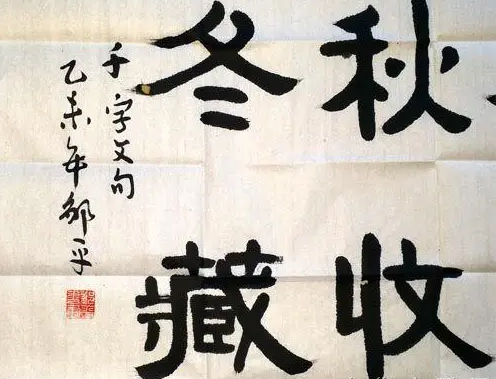 秋收
冬藏
千字文句
乙未年邹平